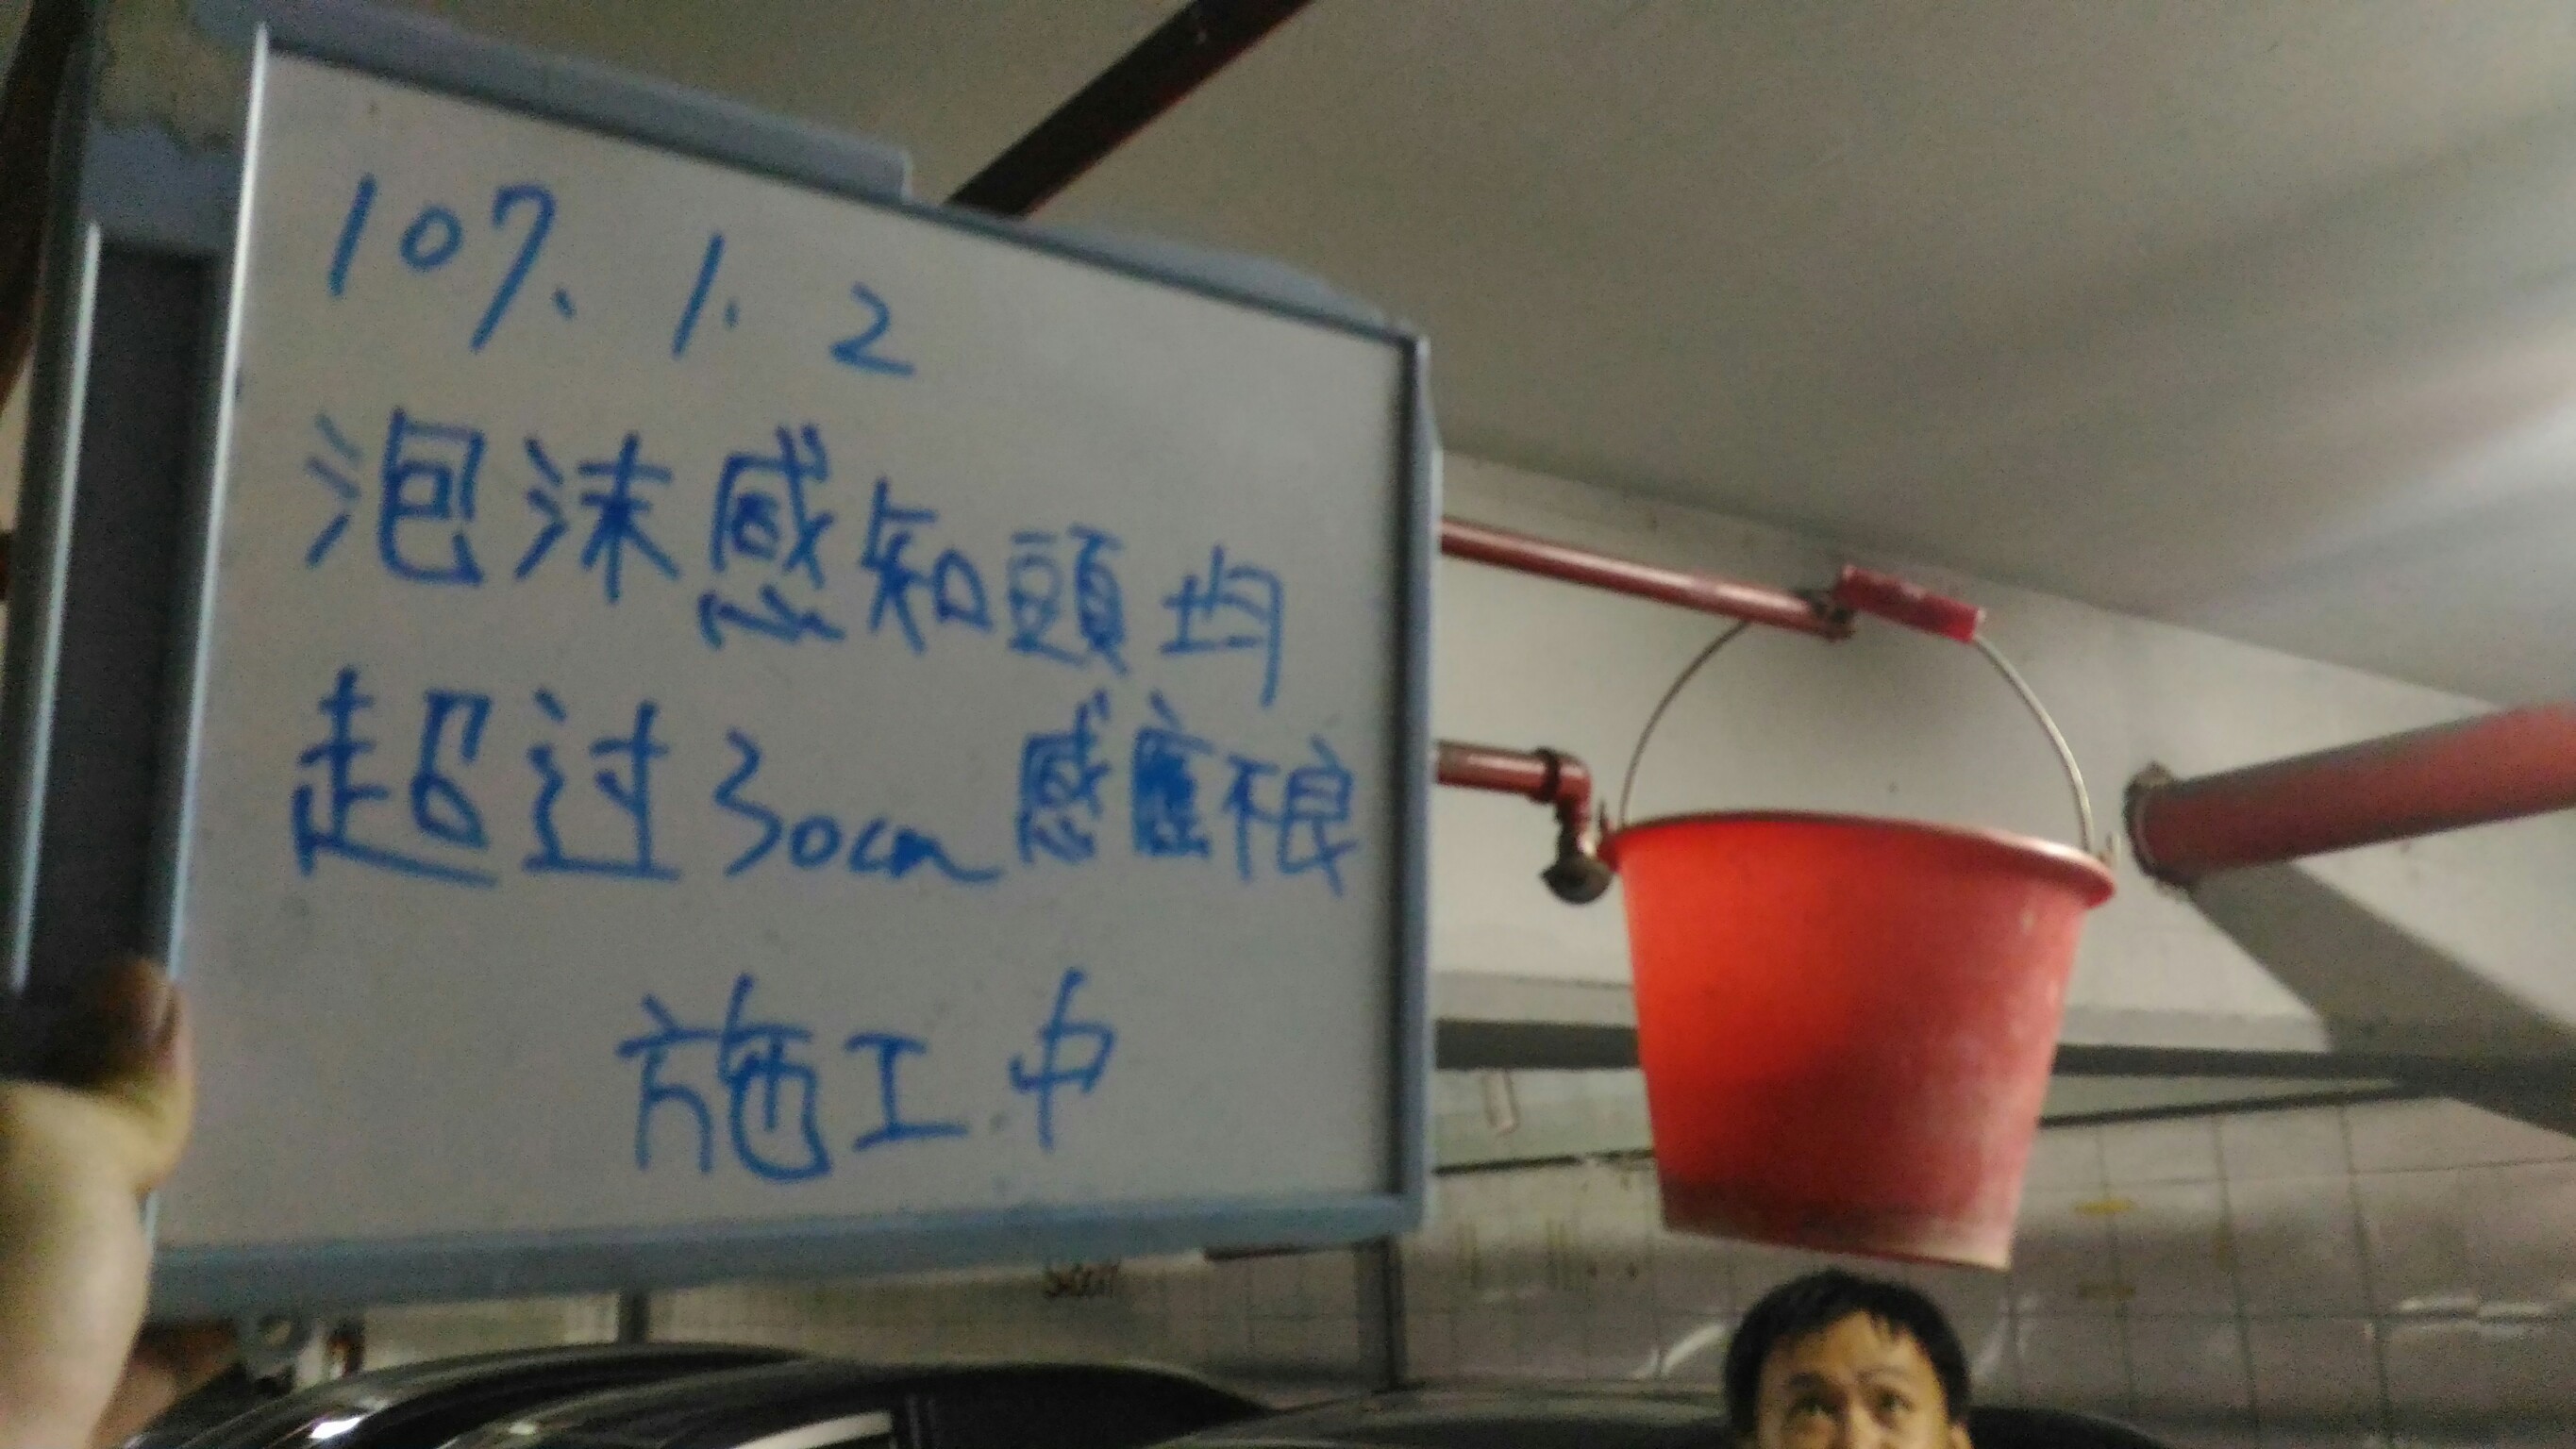 107. 1. 2
泡沫感知頭均
超过30cm感應不良
施工中